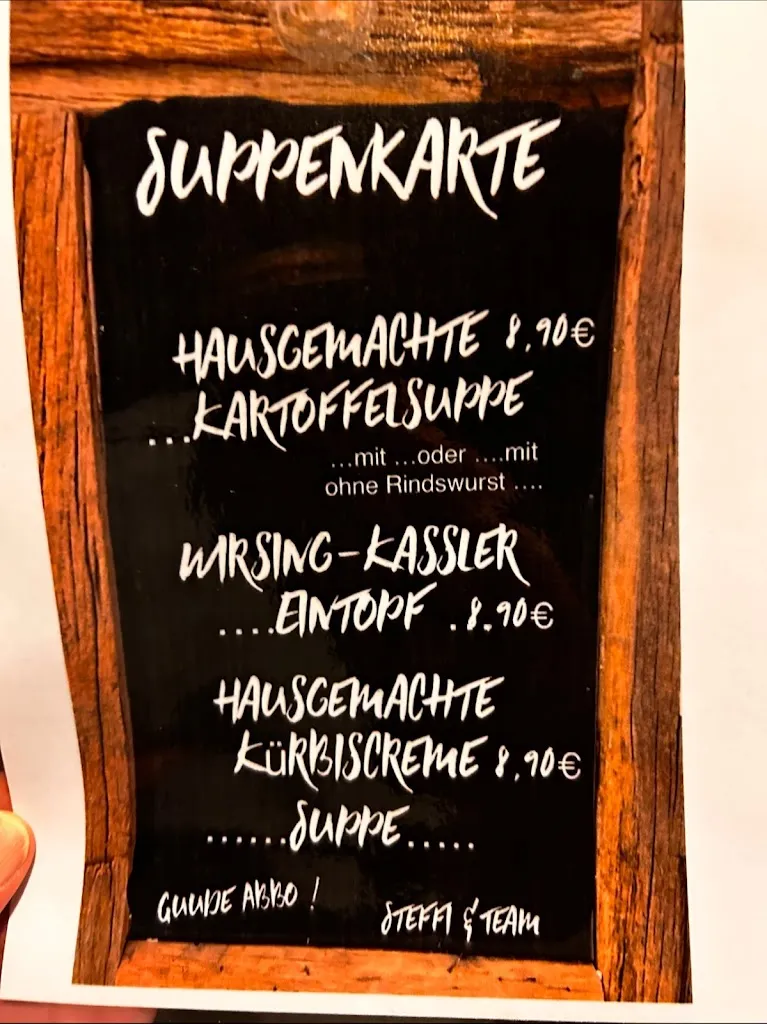 SUPPENKARTE
HAUSGEMACHTE 8,90€
...KARTOFFELSUPPE
...mit ...oder ....mit
ohne Rindswurst ....
WIRSING-KASSLER
....EINTOPF .8.90€
HAUSGEMACHTE
KÜRBISCREME 8,90€
......SUPPE.....
GUUDE ABBO !
STEFFI & TEAM